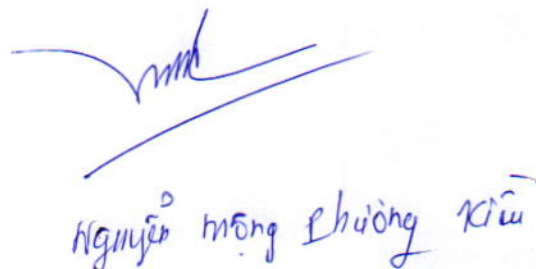 Nguyễn Mộng Phương Kiều